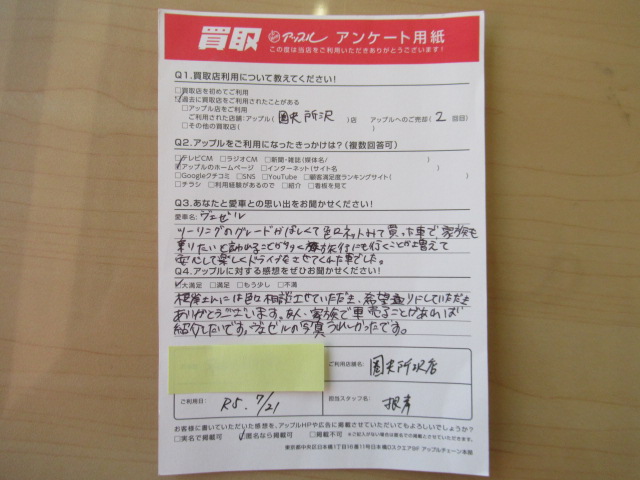 買取 アップル アンケート用紙
この度は当店をご利用いただきありがとうございます!
Q1.買取店利用について教えてください!
□買取店を初めてご利用
☑過去に買取店をご利用されたことがある
□アップル店をご利用
ご利用された店舗:アップル( 圏央所沢 )店 アップルへのご売却( 2 回目)
□その他の買取店( )
Q2.アップルをご利用になったきっかけは?(複数回答可)
☑テレビCM □ラジオCM □新聞・雑誌(媒体名/ )
☑アップルのホームページ □インターネット(サイト名 )
□Googleクチコミ □SNS □YouTube □顧客満足度ランキングサイト( )
□チラシ □利用経験があるので □紹介 □看板を見て
Q3.あなたと愛車との思い出をお聞かせください!
愛車名: ヴェゼル
ツーリングのグレードがほしくて色々ネットみて買った車で家族も
乗りたいと言めることが多く 旅行にも行くことが増えて
安心して楽しくドライブをさせてくれた車でした。
Q4.アップルに対する感想をぜひお聞かせください!
☑大満足 □満足 □もう少し □不満
根岸さんには色々相談させていただき、希望通りにしていただき
ありがとうございます。友人・家族で車売ることがあれば
紹介したいです。ヴェゼルの写真うれしかったです。
ご利用店舗名: 圏央所沢店
ご利用日: R5. 7/21
担当スタッフ名: 根岸
お客様に書いていただいた感想を、アップルHPや広告に掲載させていただいてもよろしいでしょうか?
□実名で掲載可 ☑匿名なら掲載可 □掲載不可 ※ご記入がない場合は匿名での掲載とさせていただきます。
東京都中央区日本橋1丁目16番11号日本橋Dスクエア9F アップルチェーン本部